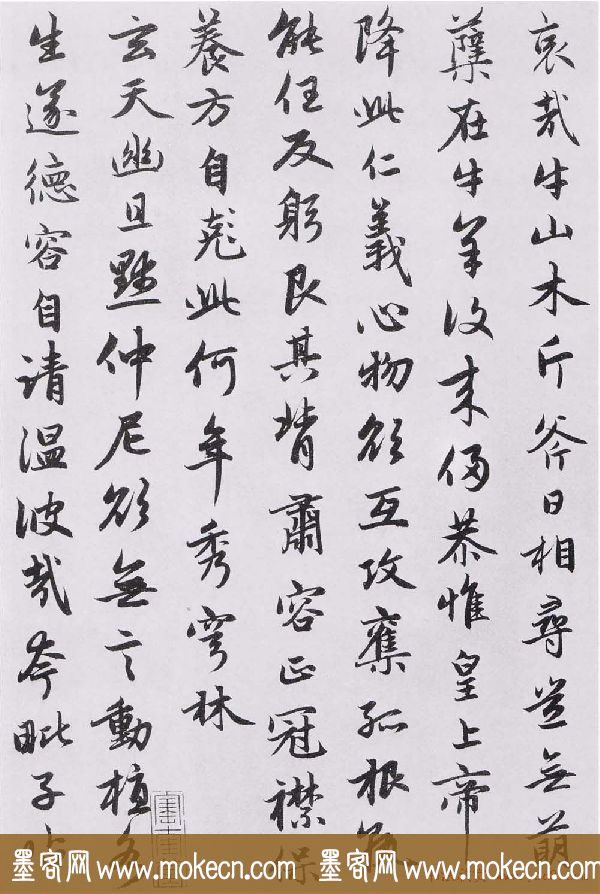 哀哉牛山木斤斧日相尋豈无萌
蘖在牛羊復來侵恭惟皇上帝
降此仁義心物欲互攻奪孤根孰
能任反躬艮其背肅容正冠襟保
養方自彪此何年秀穹林
玄天幽且默仲尼欲無言動植各
生遂德容自請溫彼哉夸毗子
墨客网 www.mokecn.com 墨客网 www.mokecn.com